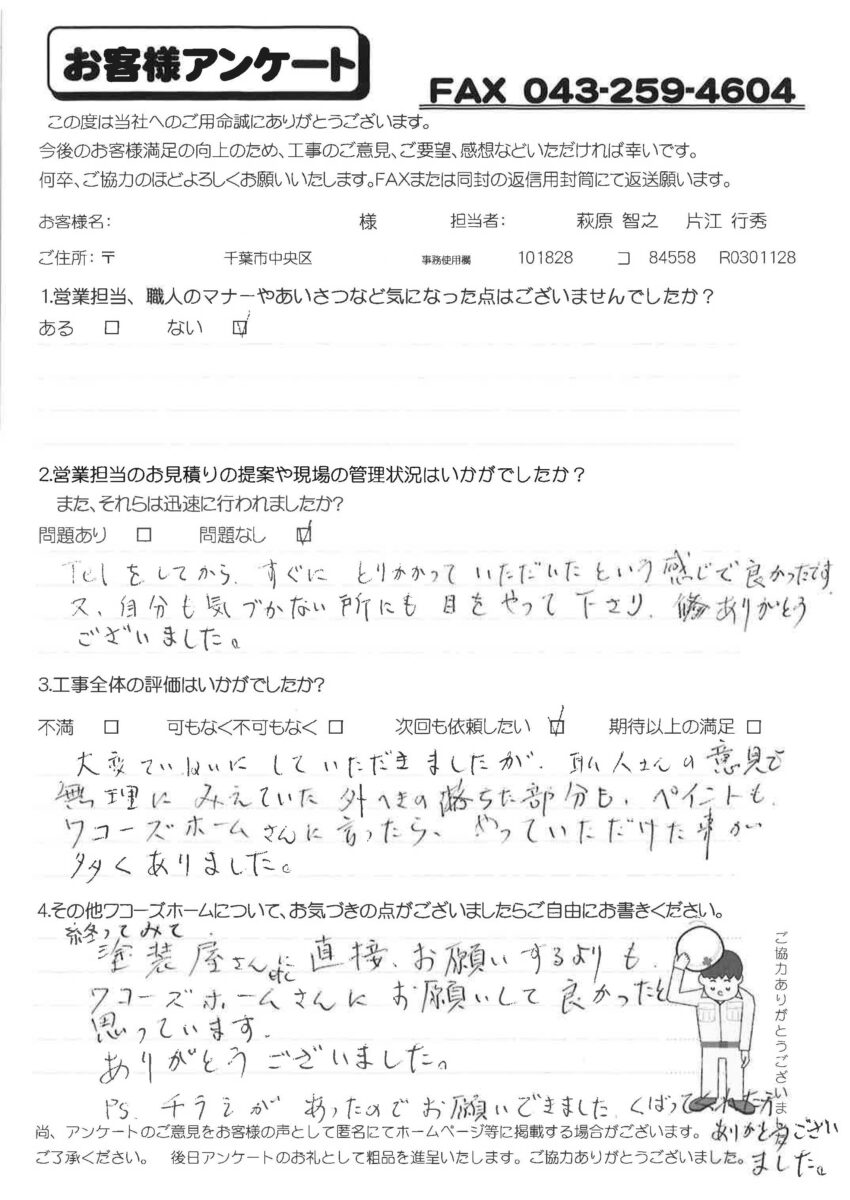 お客様アンケート
FAX 043-259-4604
この度は当社へのご用命誠にありがとうございます。
今後のお客様満足の向上のため、工事のご意見、ご要望、感想などいただければ幸いです。
何卒、ご協力のほどよろしくお願いいたします。FAXまたは同封の返信用封筒にて返送願います。
お客様名: 様 担当者: 萩原 智之 片江 行秀
ご住所:〒 千葉市中央区 事務使用欄 101828 コ 84558 R0301128
1.営業担当、職人のマナーやあいさつなど気になった点はございませんでしたか?
ある □ ない ☑
2.営業担当のお見積りの提案や現場の管理状況はいかがでしたか?
また、それらは迅速に行われましたか?
問題あり □ 問題なし ☑
Telをしてから、すぐに とりかかって いただいたという感じで良かったです
又、自分も気づかない所にも 目をやって下さり、ありがとう
ございました。
3.工事全体の評価はいかがでしたか?
不満 □ 可もなく不可もなく □ 次回も依頼したい ☑ 期待以上の満足 □
大変ていねいに していただきましたが、職人さんの意見で
無理に みえていた 外へきの落ちた部分も、ペイントも、
ワコーズホームさんに言ったら、やっていただけた事が
多くありました。
4.その他ワコーズホームについて、お気づきの点がございましたらご自由にお書きください。
終ってみて、
塗装屋さんに 直接、お願いするよりも、
ワコーズホームさんに お願いして 良かったと
思っています。
ありがとうございました。
Ps. チラシが あったのでお願いできました、くばってくれた方
ありがとうござい
ました。
ご協力ありがとうございま
尚、アンケートのご意見をお客様の声として匿名にてホームページ等に掲載する場合がございます。
ご了承ください。 後日アンケートのお礼として粗品を進呈いたします。ご協力ありがとうございました。